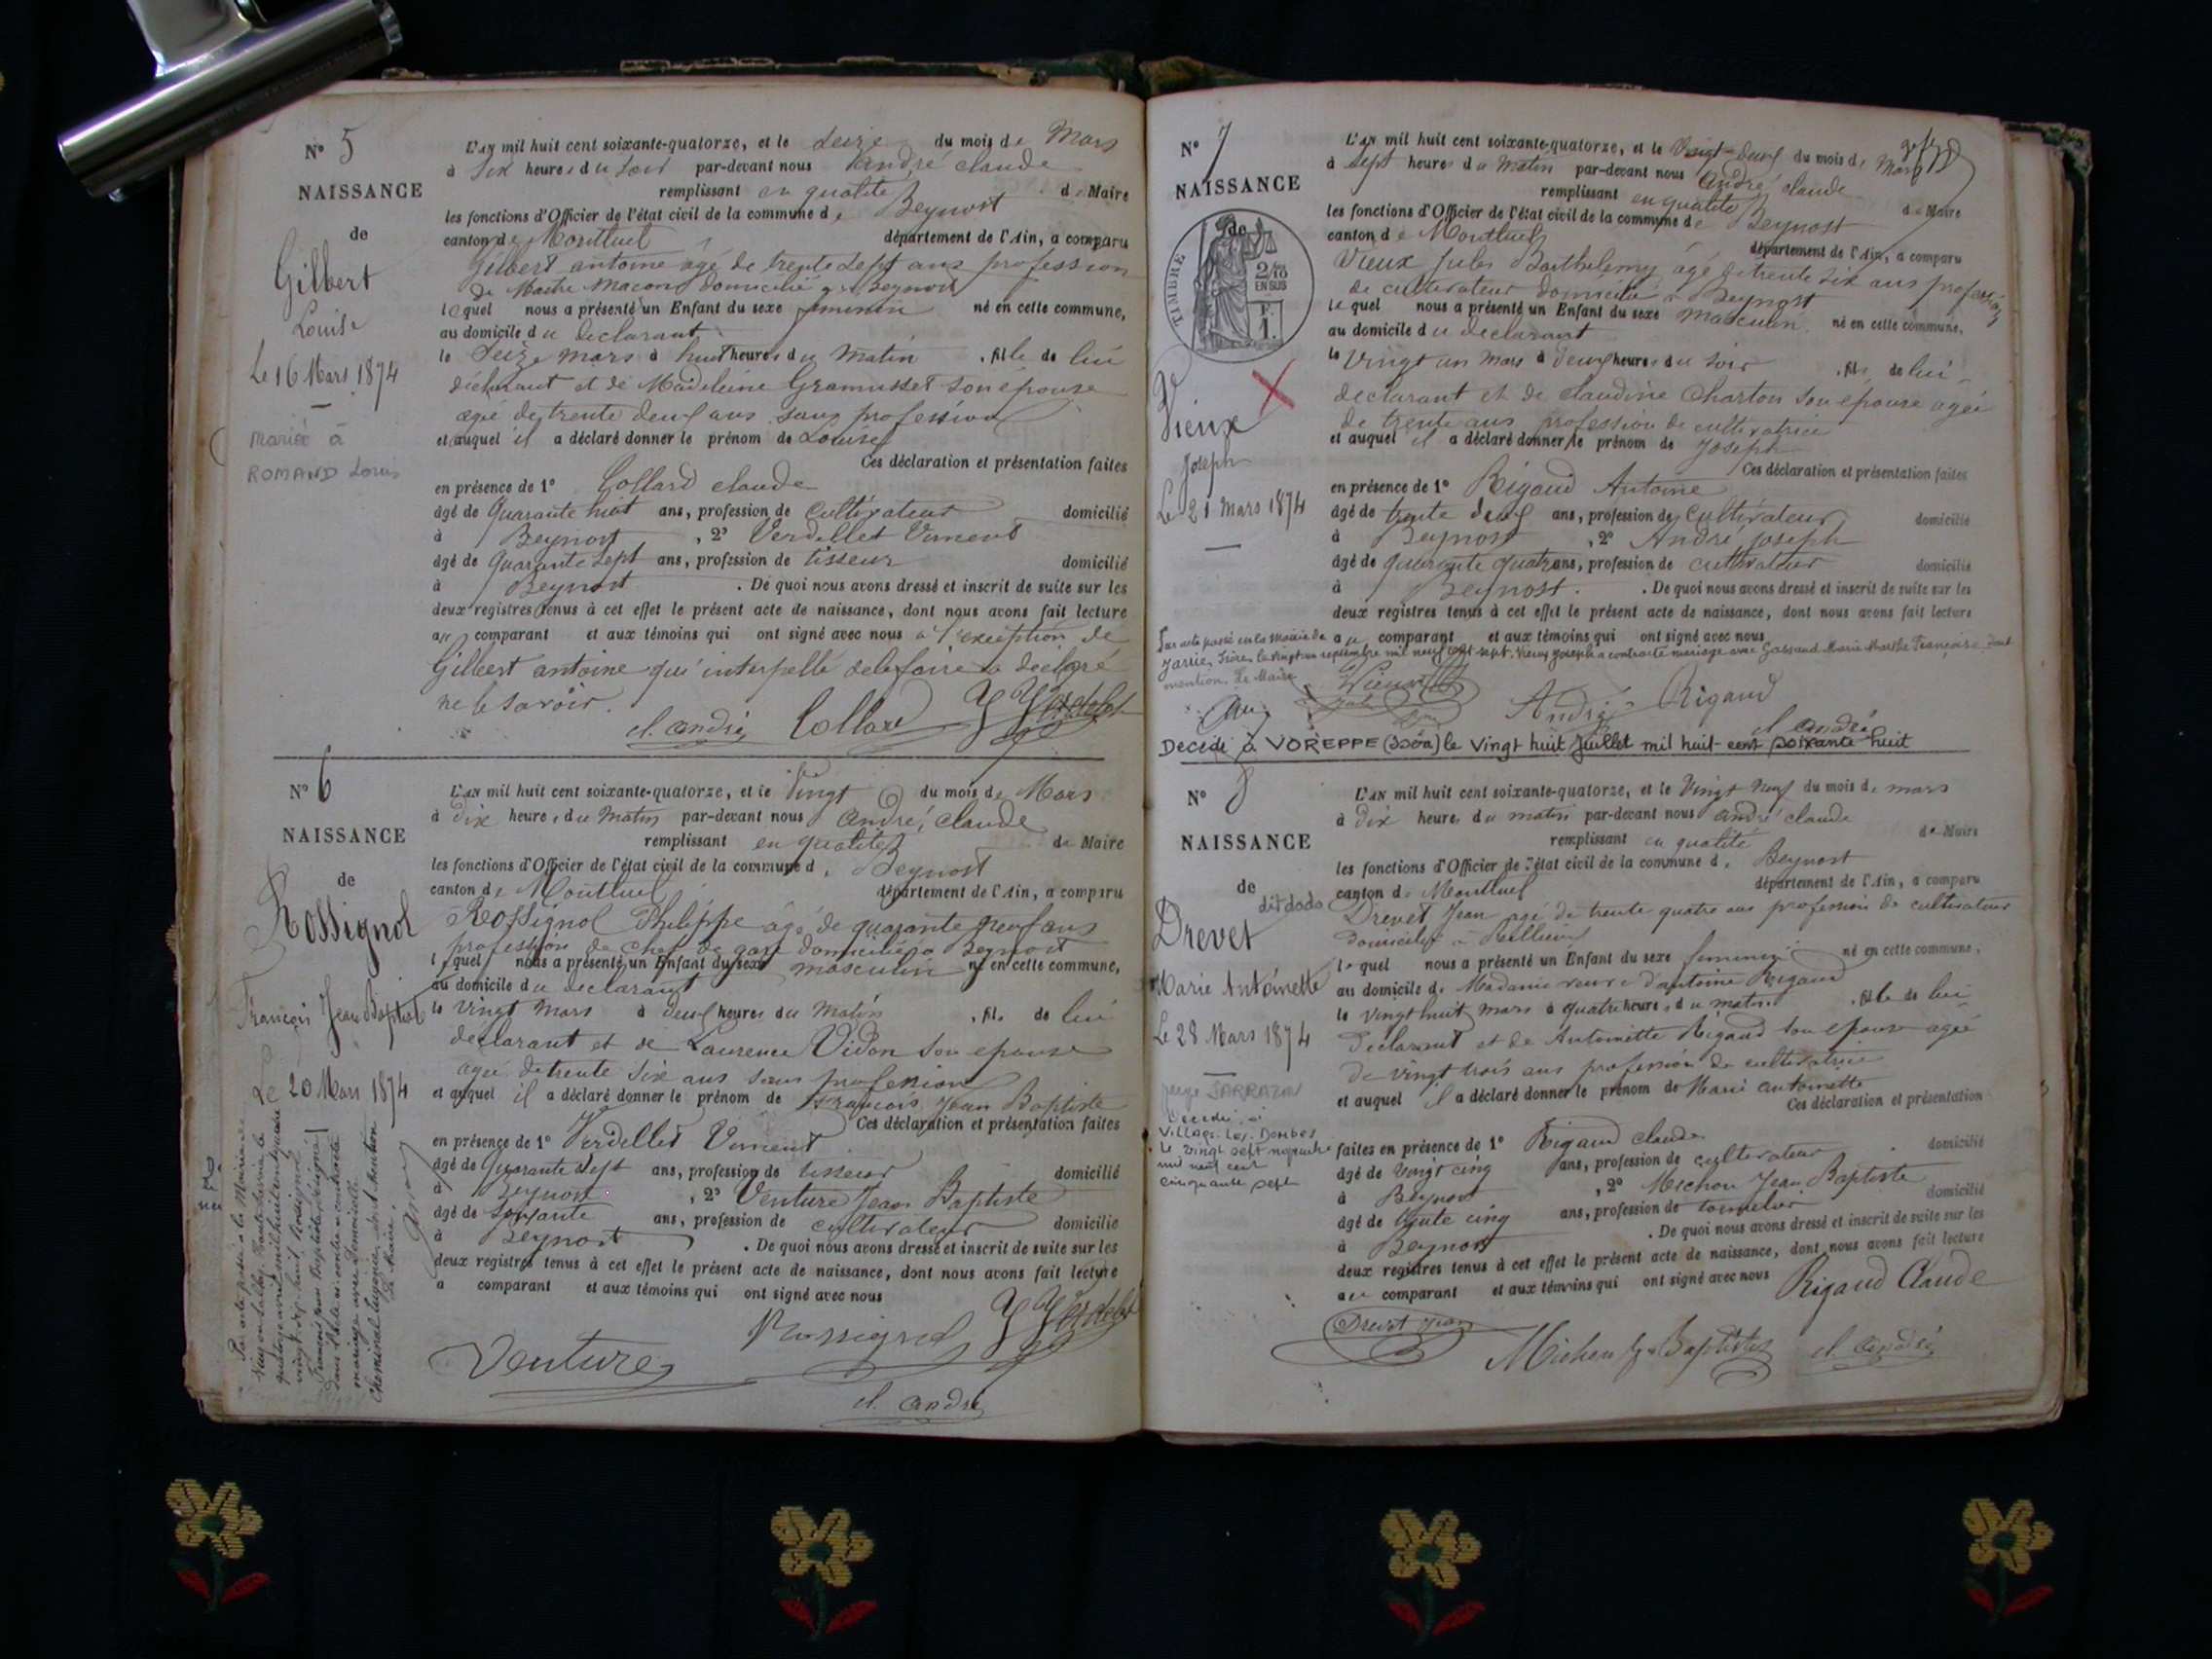 N° 5
NAISSANCE
de
Gilbert
Louise
Le 16 Mars 1874
mariée à
ROMAND Louis
L'AN mil huit cent soixante-quatorze, et le Seize du mois de Mars
à Six heures du Soir par-devant nous André Claude
remplissant en qualité de Maire
les fonctions d'Officier de l'état civil de la commune de Beynost
canton de Montluel département de l'Ain, a comparu
Gilbert antoine agé de trente Sept ans profession
de Maitre Macon domicilié a Beynost
lequel nous a présenté un Enfant du sexe feminin né en cette commune,
au domicile du declarant
le Seize mars à huit heures du Matin , fille de lui
déclarant et de Madeleine Gramusset son épouse
agée de trente deux ans sans profession
et auquel il a déclaré donner le prénom de Louise
Ces déclaration et présentation faites
en présence de 1° Collard claude
âgé de Quarante huit ans, profession de Cultivateur domicilié
à Beynost , 2° Verdellet Vincent
âgé de Quarante Sept ans, profession de tisseur domicilié
à Beynost . De quoi nous avons dressé et inscrit de suite sur les
deux registres tenus à cet effet le présent acte de naissance, dont nous avons fait lecture
au comparant et aux témoins qui ont signé avec nous a l'exception de
Gilbert antoine qui interpellé de le faire a déclaré
ne le savoir.
cl. andré Collard Verdelet
N° 6
NAISSANCE
de
Rossignol
François Jean Baptiste
Le 20 Mars 1874
L'AN mil huit cent soixante-quatorze, et le Vingt du mois de Mars
à Dix heures du Matin par-devant nous André Claude
remplissant en qualité de Maire
les fonctions d'Officier de l'état civil de la commune de Beynost
canton de Montluel département de l'Ain, a comparu
Rossignol Philippe agé de quarante neuf ans
profession de chef de gare domicilié a Beynost
lequel nous a présenté un Enfant du sexe masculin né en cette commune,
au domicile du declarant
le Vingt Mars à Deux heures du Matin , fils de lui
declarant et de Laurence Vidon son epouse
agée de trente Six ans sans profession
et auquel il a déclaré donner le prénom de François Jean Baptiste
Ces déclaration et présentation faites
en présence de 1° Verdellet Vincent
âgé de Quarante Sept ans, profession de tisseur domicilié
à Beynost , 2° Venture Jean Baptiste
âgé de Soixante ans, profession de cultivateur domicilié
à Beynost . De quoi nous avons dressé et inscrit de suite sur les
deux registres tenus à cet effet le présent acte de naissance, dont nous avons fait lecture
a comparant et aux témoins qui ont signé avec nous
Rossignol Verdelet
Venture
cl. andré
N° 7
NAISSANCE
de
TIMBRE 2/10 EN SUS F. 1.
Vieux
Joseph
Le 21 Mars 1874
L'AN mil huit cent soixante-quatorze, et le Vingt-deux du mois de Mars
à Sept heures du Matin par-devant nous André Claude
remplissant en qualité de Maire
les fonctions d'Officier de l'état civil de la commune de Beynost
canton de Montluel département de l'Ain, a comparu
Vieux Jules Barthelemy âgé de trente six ans profession
de cultivateur domicilié a Beynost
lequel nous a présenté un Enfant du sexe masculin né en cette commune,
au domicile du declarant
le Vingt un Mars à deux heures du Soir , fils de lui
declarant et de claudine Charton son épouse agée
de trente ans profession de cultivatrice
et auquel il a déclaré donner le prénom de Joseph
Ces déclaration et présentation faites
en présence de 1° Rigaud Antoine
âgé de trente deux ans, profession de Cultivateur domicilié
à Beynost , 2° André Joseph
âgé de quarante quatre ans, profession de cultivateur domicilié
à Beynost . De quoi nous avons dressé et inscrit de suite sur les
deux registres tenus à cet effet le présent acte de naissance, dont nous avons fait lecture
au comparant et aux témoins qui ont signé avec nous
Par acte passé en la Mairie de
Jarrie, Isère, le vingt un septembre mil neuf cent sept, Vieux Joseph a contracté mariage avec Gassaud Marie Marthe Françoise dont
mention. Le Maire
Vieux André Rigaud
cl. andré
Décédé à VOREPPE (Isère) le Vingt huit Juillet mil huit cent soixante huit
N° 8
NAISSANCE
de
dit dodo
Drevet
Marie Antoinette
Le 28 Mars 1874
SARRAZIN
Décédée à
Villars-les-Dombes
le vingt sept novembre
mil neuf cent
cinquante sept
L'AN mil huit cent soixante-quatorze, et le Vingt neuf du mois de mars
à Dix heures du matin par-devant nous andré claude
remplissant en qualité de Maire
les fonctions d'Officier de l'état civil de la commune de Beynost
canton de Montluel département de l'Ain, a comparu
Drevet Jean agé de trente quatre ans profession de cultivateur
domicilié à Rillieux
lequel nous a présenté un Enfant du sexe feminin né en cette commune,
au domicile de Madame veuve d'antoine Rigaud
le Vingt huit mars à quatre heures du matin , fille de lui
Declarant et de Antoinette Rigaud son epouse agée
de vingt trois ans profession de cultivatrice
et auquel il a déclaré donner le prénom de Marie antoinette
Ces déclaration et présentation
faites en présence de 1° Rigaud claude
âgé de Vingt cinq ans, profession de cultivateur domicilié
à Beynost , 2° Michon Jean Baptiste
âgé de trente cinq ans, profession de tonnelier domicilié
à Beynost . De quoi nous avons dressé et inscrit de suite sur les
deux registres tenus à cet effet le présent acte de naissance, dont nous avons fait lecture
au comparant et aux témoins qui ont signé avec nous Rigaud Claude
Drevet Jean
Michon Jn Baptiste cl. andré